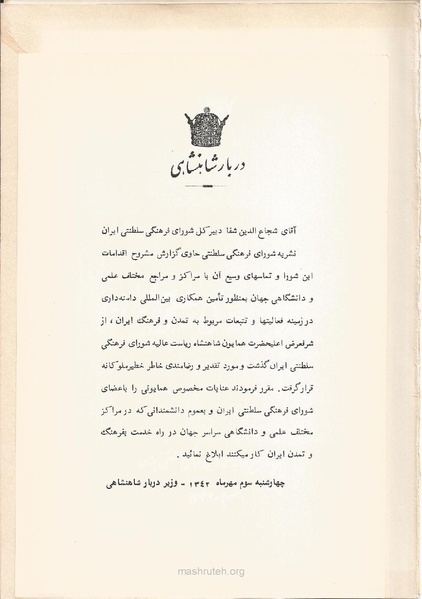 دربار شاهنشاهی
آقای شجاع الدین شفا دبیر کل شورای فرهنگی سلطنتی ایران
نشریه شورای فرهنگی سلطنتی حاوی گزارش مشروح اقدامات
این شورا و تماسهای وسیع آن با مراکز و مراجع مختلف علمی
و دانشگاهی جهان بمنظور تأمین همکاری بین‌المللی دامنه‌داری
در زمینه فعالیتها و تتبعات مربوط به تمدن و فرهنگ ایران ، از
شرفعرض اعلیحضرت همایون شاهنشاه ریاست عالیه شورای فرهنگی
سلطنتی ایران گذشت و مورد تقدیر و رضامندی خاطر خطیر ملوکانه
قرار گرفت . مقرر فرمودند عنایات مخصوص همایونی را باعضای
شورای فرهنگی سلطنتی ایران و بعموم دانشمندانی که در مراکز
مختلف علمی و دانشگاهی سراسر جهان در راه خدمت بفرهنگ
و تمدن ایران کار میکنند ابلاغ نمائید .
چهارشنبه سوم مهرماه ۱۳۴۲ - وزیر دربار شاهنشاهی
mashruteh.org